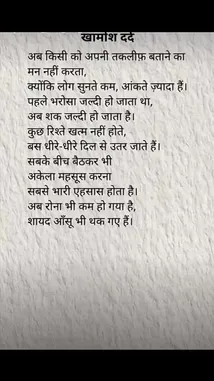 खामोश दर्द
अब किसी को अपनी तकलीफ़ बताने का
मन नहीं करता,
क्योंकि लोग सुनते कम, आंकते ज़्यादा हैं।
पहले भरोसा जल्दी हो जाता था,
अब शक जल्दी हो जाता है।
कुछ रिश्ते खत्म नहीं होते,
बस धीरे-धीरे दिल से उतर जाते हैं।
सबके बीच बैठकर भी
अकेला महसूस करना
सबसे भारी एहसास होता है।
अब रोना भी कम हो गया है,
शायद आँसू भी थक गए हैं।